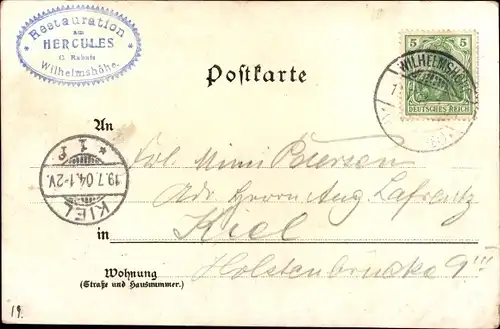 Restauration
am
HERCULES
Wilhelmshöhe.
Postkarte
5 5
WILHELMSHÖHE
DEUTSCHES REICH
An
Frl. Mimi Petersen
* 1 f *
19.7.04.1-2V.
KIEL
Adr. Herrn Aug Lafrentz
Kiel
in
Wohnung
(Straße und Hausnummer.)
Holstenbrücke 9
19.